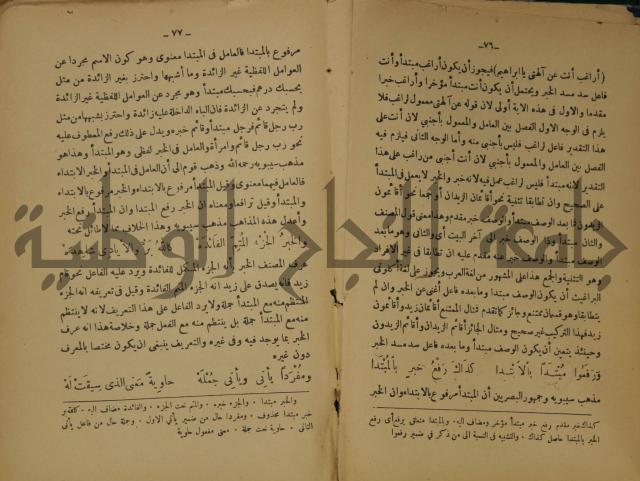 -٧٦-
(أراغب أنت عن آلهتي يا ابراهيم) فيجوز أن يكون أراغب مبتدأ وأنت
فاعل سد مسد الخبر ويحتمل أن يكون أنت مبتدأ مؤخرا وأراغب خبرا
مقدما والاول في هذه الآية أولى لان قوله عن آلهتي معمول لراغب فلا
يلزم في الوجه الاول الفصل بين العامل والمعمول بأجنبي لان أنت على
هذا التقدير فاعل لراغب فليس بأجنبي منه وأما الوجه الثاني فيلزم فيه
الفصل بين العامل والمعمول بأجنبي لان أنت أجنبي من راغب على هذا
التقدير لانه مبتدأ فليس لراغب عمل فيه لانه خبر والخبر لا يعمل في المبتدأ
على الصحيح وان تطابقا تثنية نحو أقائمان الزيدان أو جمعا نحو أقائمون
الزيدون فما بعد الوصف مبتدأ والوصف خبر مقدم وهذا معنى قول المصنف
والثان مبتدا وذا الوصف خبر الى آخر البيت أي والثاني وهو ما بعد
الوصف مبتدأ والوصف خبر عنه مقدم عليه ان تطابقا في غير الافراد
وهو التثنية والجمع هذا على المشهور من لغة العرب ويجوز على لغة أكلوني
البراغيث أن يكون الوصف مبتدأ وما بعده فاعل أغنى عن الخبر وان لم
يتطابقا وهو قسمان ممتنع وجائز كما تقدم فمثال الممتنع أقائمان زيد وأقائمون
زيد فهذا التركيب غير صحيح ومثال الجائز أقائم الزيدان وأقائم الزيدون
وحينئذ يتعين أن يكون الوصف مبتدأ وما بعده فاعل سد مسد الخبر
وَرَفَعُوا مُبْتَدَأً بِالابْتِدا كَذَاكَ رَفْعُ خَبَرٍ بِالمُبْتَدَا
مذهب سيبويه وجمهور البصريين أن المبتدأ مرفوع بالابتداء وان الخبر
كذاك خبر مقدم رفع خبر مبتدأ مؤخر ومضاف اليه. وبالمبتدا متعلق برفع أي رفع
الخبر بالمبتدا حاصل كذاك. والتشبيه في النسبة الى من ذكر في ضمير رفعوا
-٧٧-
مرفوع بالمبتدا فالعامل في المبتدا معنوي وهو كون الاسم مجردا عن
العوامل اللفظية غير الزائدة وما أشبهها واحترز بغير الزائدة من مثل
بحسبك درهم فبحسبك مبتدأ وهو مجرد عن العوامل اللفظية غير الزائدة
ولم يتجرد عن الزائدة فان الباء الداخلة عليه زائدة واحترز بشبهها من مثل
رب رجل قائم فرجل مبتدأ وقائم خبره ويدل على ذلك رفع المعطوف عليه
نحو رب رجل قائم وامرأة والعامل في الخبر لفظي وهو المبتدأ وهذا هو
مذهب سيبويه رحمه الله وذهب قوم الى أن العامل في المبتدأ والخبر الابتداء
فالعامل فيهما معنوي وقيل المبتدأ مرفوع بالابتداء والخبر مرفوع بالابتداء
والمبتدأ وقيل ترافعا ومعناه ان الخبر رفع المبتدا وان المبتدا رفع الخبر
وأعدل هذه المذاهب مذهب سيبويه وهذا الخلاف مما لا طائل تحته
والخَبَرُ الجُزْءُ المُتِمُّ الفَائِدَهْ كاللهُ بَرٌّ والأَيَادِي شَاهِدَهْ
عرف المصنف الخبر بأنه الجزء المكمل للفائدة ويرد عليه الفاعل نحو قام
زيد فانه يصدق على زيد انه الجزء المتم الفائدة وقيل في تعريفه انه الجزء
المنتظم منه مع المبتدأ جملة ولا يرد الفاعل على هذا التعريف لانه لا ينتظم
منه مع المبتدأ جملة بل ينتظم منه مع الفعل جملة وخلاصة هذا انه عرف
الخبر بما يوجد فيه وفي غيره والتعريف ينبغي ان يكون مختصا بالمعرف
دون غيره
ومُفْرَداً يأتي ويأتي جُمْلَهْ حاوِيةً مَعْنى الذي سِيقَتْ لَهُ
والخبر مبتدا. والجزء خبره. والمتم نعت الجزء. والفائدة مضاف اليه. كالله بر
خبر مبتدا محذوف. ومفردا حال من ضمير يأتي الاول. وجملة حال من فاعل يأتي
الثاني. حاوية نعت جملة. معنى مفعول حاوية
جامعة النجاح الوطنية